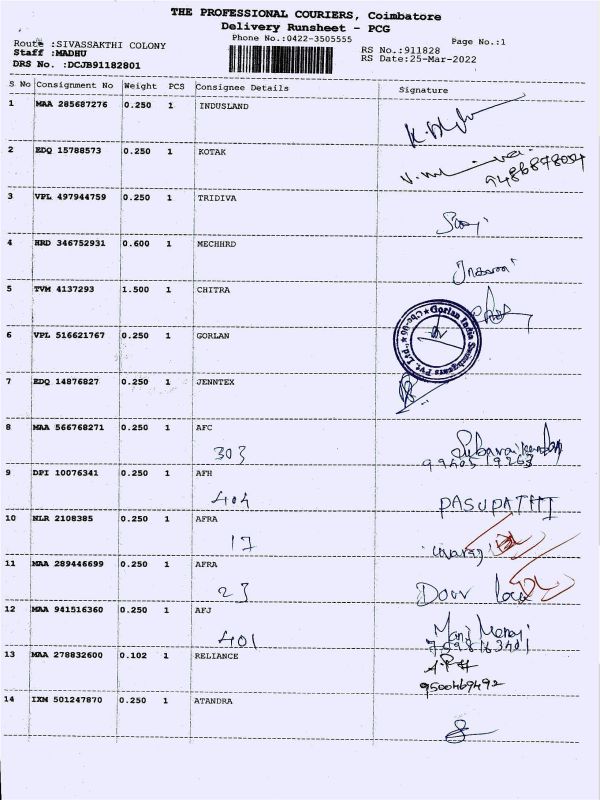 THE PROFESSIONAL COURIERS, Coimbatore
Delivery Runsheet - PCG
Phone No.:0422-3505555
Page No.:1
Route :SIVASSAKTHI COLONY
Staff :MADHU
DRS No. :DCJB91182801
RS No.:911828
RS Date:25-Mar-2022
S No Consignment No Weight PCS Consignee Details Signature
1 MAA 285687276 0.250 1 INDUSLAND
2 EDQ 15788573 0.250 1 KOTAK
3 VPL 497944759 0.250 1 TRIDIVA
4 HRD 346752931 0.600 1 MECHHRD
5 TVM 4137293 1.500 1 CHITRA
6 VPL 516621767 0.250 1 GORLAN
Gorlan India
Pvt. Ltd.,
7 EDQ 14876827 0.250 1 JENNTEX
8 MAA 566768271 0.250 1 AFC
303
9 DPI 10076341 0.250 1 AFH
404 PASUPATHI
10 NLR 2108385 0.250 1 AFRA
17
11 MAA 289446699 0.250 1 AFRA
23 Door lock
12 MAA 941516360 0.250 1 AFJ
401
13 MAA 278832600 0.102 1 RELIANCE
9500469492
14 IXM 501247870 0.250 1 ATANDRA